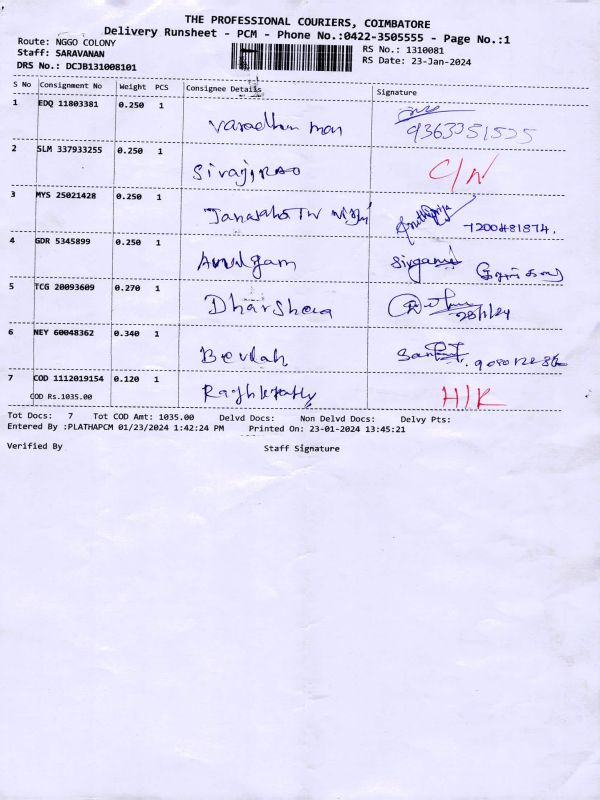 THE PROFESSIONAL COURIERS, COIMBATORE
Delivery Runsheet - PCM - Phone No.:0422-3505555 - Page No.:1
Route: NGGO COLONY
Staff: SARAVANAN
DRS No.: DCJB131008101
RS No.: 1310081
RS Date: 23-Jan-2024
S No Consignment No Weight PCS Consignee Details Signature
1 EDQ 11803381 0.250 1
9363251525
2 SLM 337933255 0.250 1 Sivaji RAO C/N
3 MYS 25021428 0.250 1
4 GDR 5345899 0.250 1 Arulgam
5 TCG 20093609 0.270 1 Dharshena
6 NEY 60048362 0.340 1
7 COD 1112019154 0.120 1 H/K
COD Rs.1035.00
Tot Docs: 7 Tot COD Amt: 1035.00 Delvd Docs: Non Delvd Docs: Delvy Pts:
Entered By :PLATHAPCM 01/23/2024 1:42:24 PM Printed On: 23-01-2024 13:45:21
Verified By Staff Signature